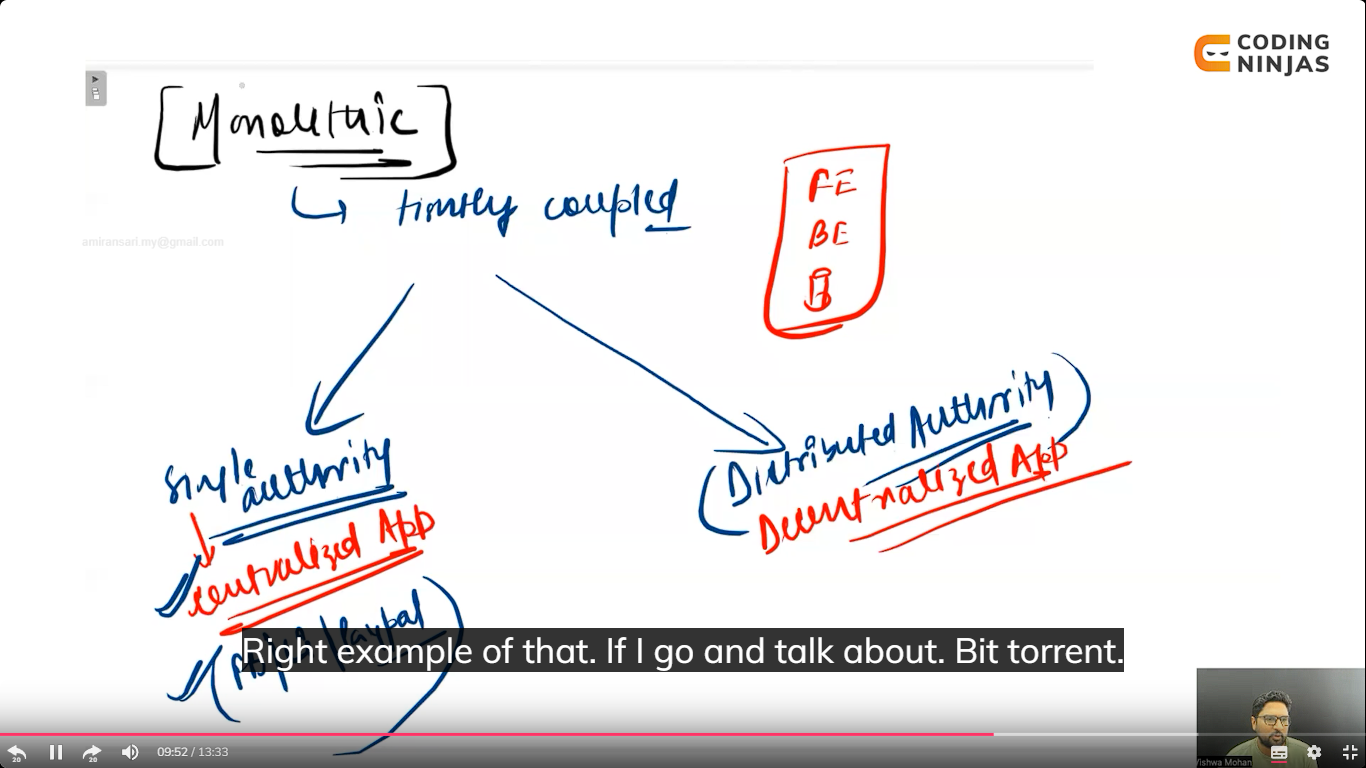 CODING
NINJAS
[Monolithic]
↳ tightly coupled
FE
BE
amiransari.my@gmail.com
Single
authority
centralized App
Paypal
(Distributed Authority)
Decentralized App
Right example of that. If I go and talk about. Bit torrent.
20
20
09:52 / 13:33
Vishwa Mohan